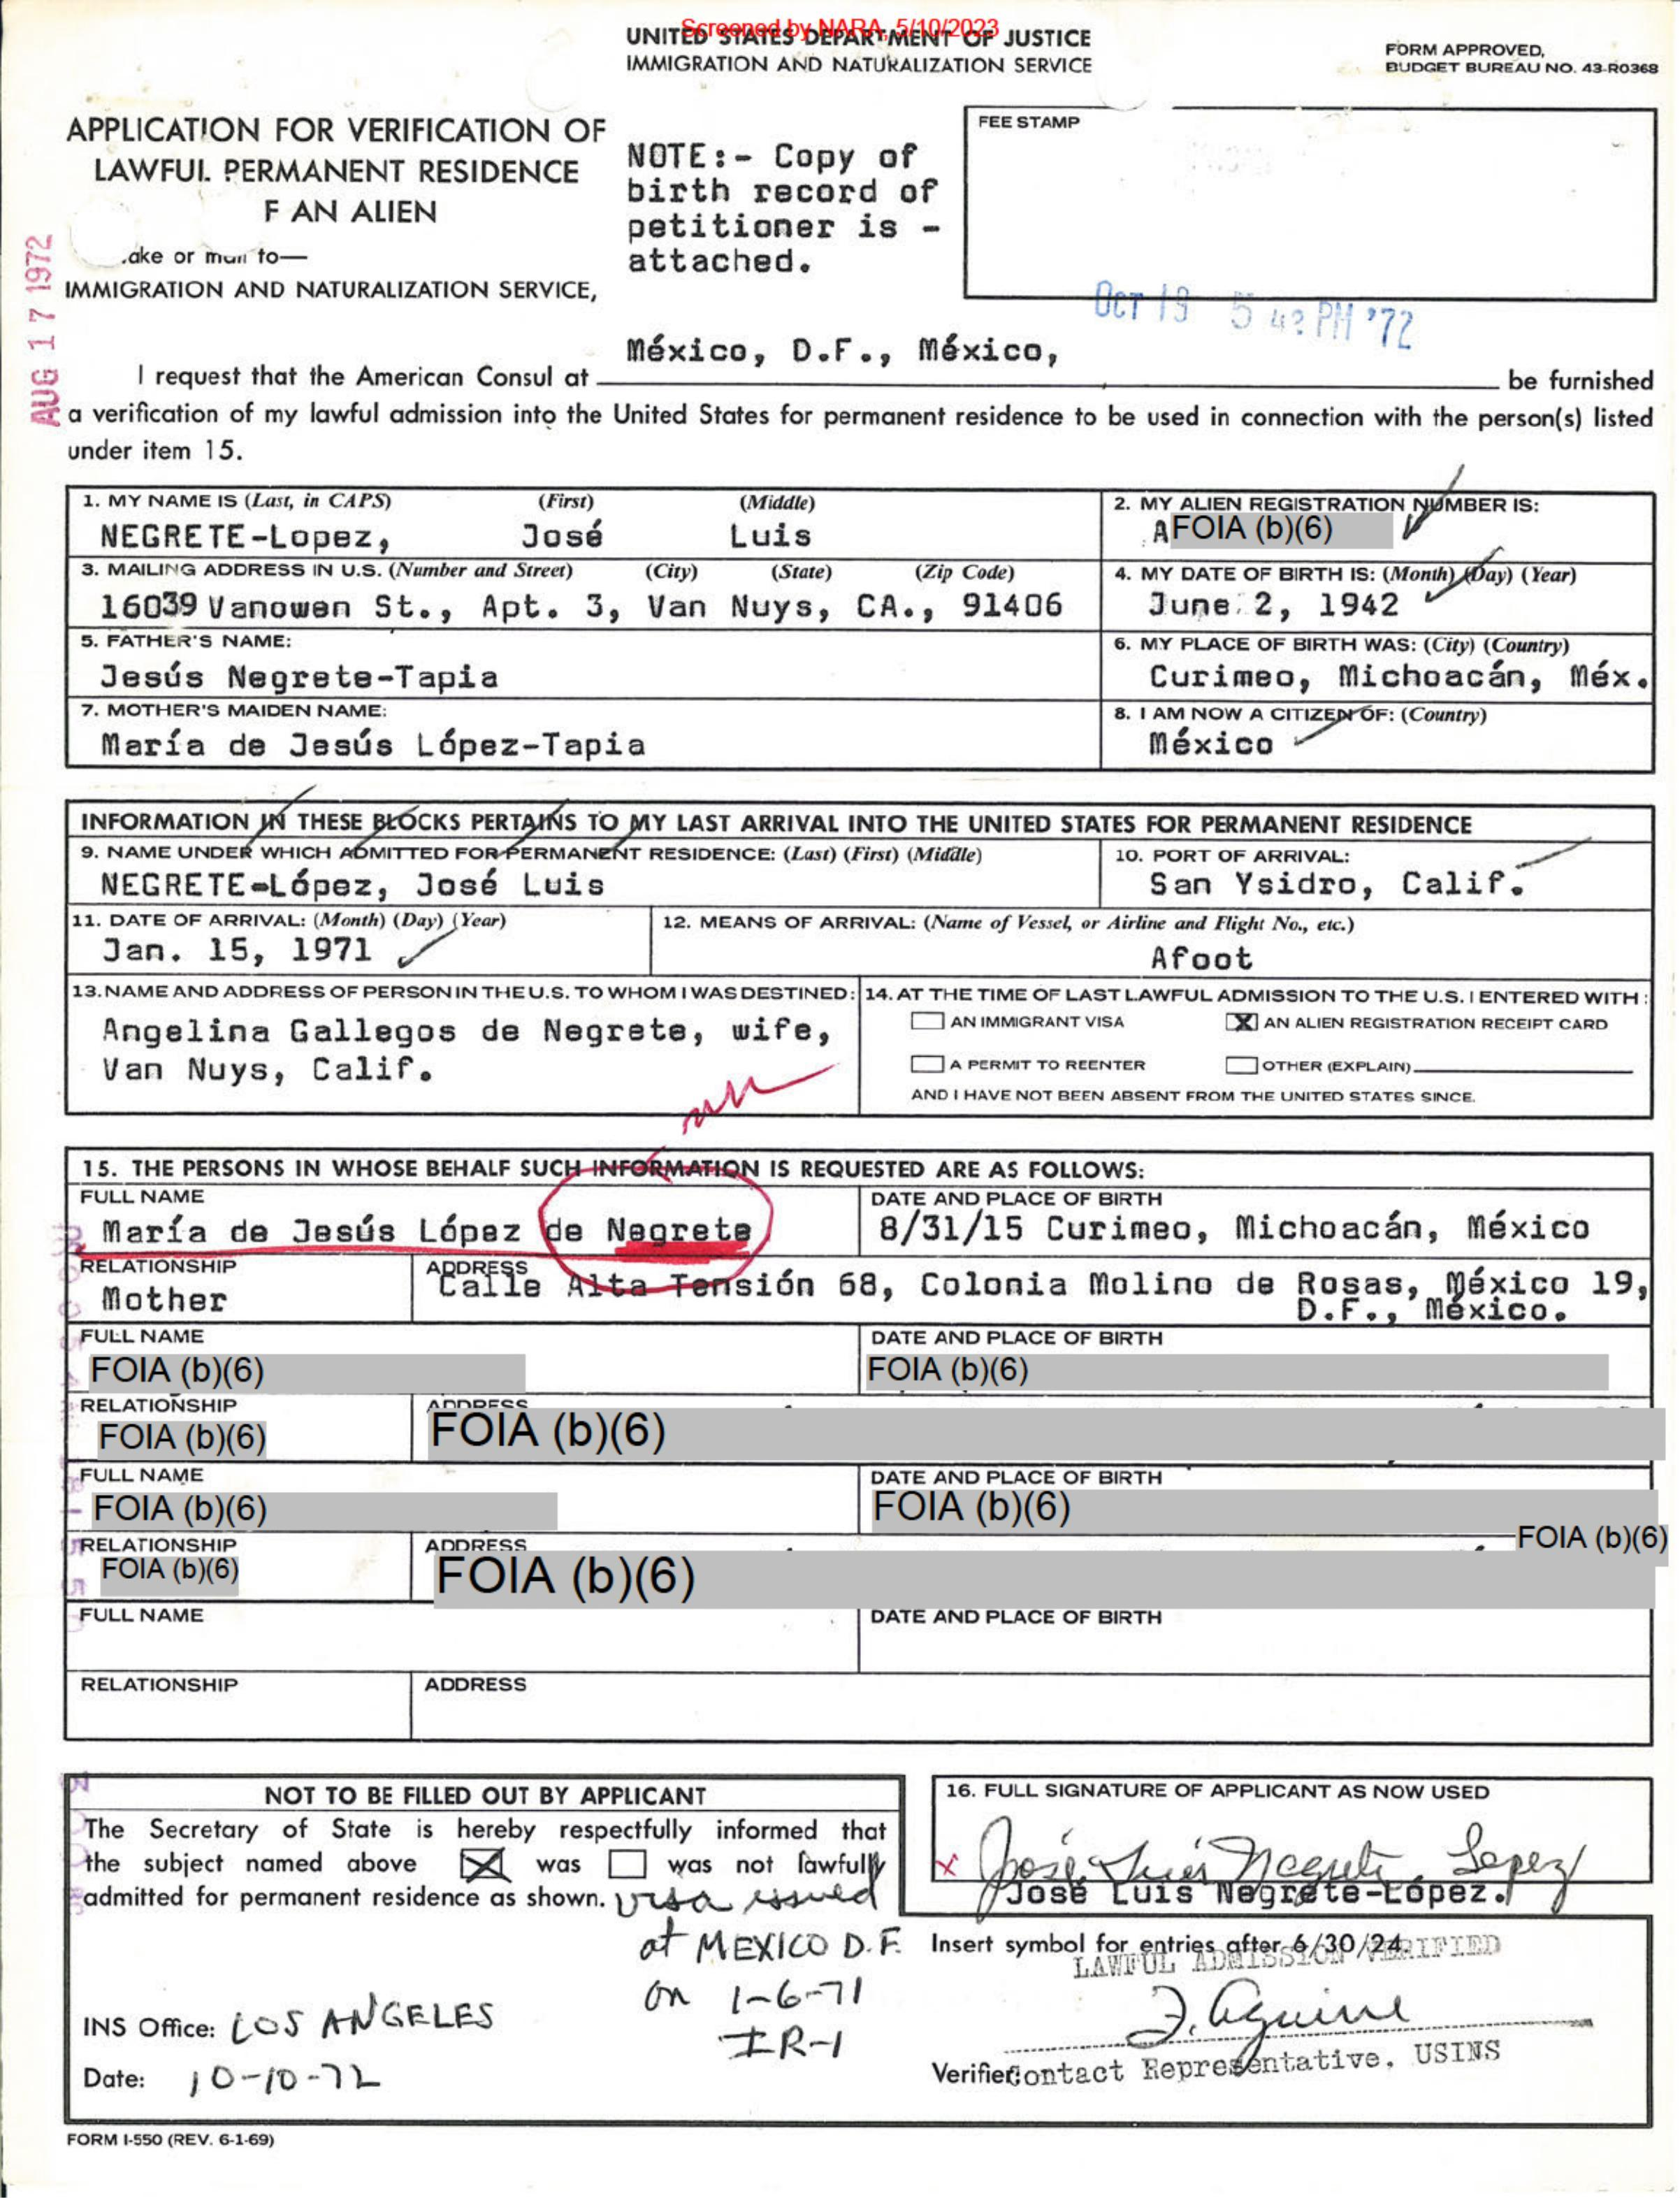 Screened by NARA, 5/10/2023
UNITED STATES DEPARTMENT OF JUSTICE
IMMIGRATION AND NATURALIZATION SERVICE
FORM APPROVED,
BUDGET BUREAU NO. 43-R0368
APPLICATION FOR VERIFICATION OF
LAWFUL PERMANENT RESIDENCE
F AN ALIEN
ake or mail to—
IMMIGRATION AND NATURALIZATION SERVICE,
NOTE:- Copy of
birth record of
petitioner is -
attached.
FEE STAMP
AUG 17 1972
OCT 19 5 PM '72
México, D.F., México,
I request that the American Consul at be furnished
a verification of my lawful admission into the United States for permanent residence to be used in connection with the person(s) listed
under item 15.
1. MY NAME IS (Last, in CAPS) (First) (Middle)
NEGRETE-Lopez, José Luis
2. MY ALIEN REGISTRATION NUMBER IS:
A FOIA (b)(6)
3. MAILING ADDRESS IN U.S. (Number and Street) (City) (State) (Zip Code)
16039 Vanowen St., Apt. 3, Van Nuys, CA., 91406
4. MY DATE OF BIRTH IS: (Month) (Day) (Year)
June 2, 1942
5. FATHER'S NAME:
Jesús Negrete-Tapia
6. MY PLACE OF BIRTH WAS: (City) (Country)
Curimeo, Michoacán, Méx.
7. MOTHER'S MAIDEN NAME:
María de Jesús López-Tapia
8. I AM NOW A CITIZEN OF: (Country)
México
INFORMATION IN THESE BLOCKS PERTAINS TO MY LAST ARRIVAL INTO THE UNITED STATES FOR PERMANENT RESIDENCE
9. NAME UNDER WHICH ADMITTED FOR PERMANENT RESIDENCE: (Last) (First) (Middle)
NEGRETE-López, José Luis
10. PORT OF ARRIVAL:
San Ysidro, Calif.
11. DATE OF ARRIVAL: (Month) (Day) (Year)
Jan. 15, 1971
12. MEANS OF ARRIVAL: (Name of Vessel, or Airline and Flight No., etc.)
Afoot
13. NAME AND ADDRESS OF PERSON IN THE U.S. TO WHOM I WAS DESTINED:
Angelina Gallegos de Negrete, wife,
Van Nuys, Calif.
14. AT THE TIME OF LAST LAWFUL ADMISSION TO THE U.S. I ENTERED WITH:
AN IMMIGRANT VISA X AN ALIEN REGISTRATION RECEIPT CARD
A PERMIT TO REENTER OTHER (EXPLAIN)
AND I HAVE NOT BEEN ABSENT FROM THE UNITED STATES SINCE.
15. THE PERSONS IN WHOSE BEHALF SUCH INFORMATION IS REQUESTED ARE AS FOLLOWS:
FULL NAME
María de Jesús López de Negrete
DATE AND PLACE OF BIRTH
8/31/15 Curimeo, Michoacán, México
RELATIONSHIP
Mother
ADDRESS
Calle Alta Tensión 68, Colonia Molino de Rosas, México 19,
D.F., México.
FULL NAME
FOIA (b)(6)
DATE AND PLACE OF BIRTH
FOIA (b)(6)
RELATIONSHIP
FOIA (b)(6)
ADDRESS
FOIA (b)(6)
FULL NAME
FOIA (b)(6)
DATE AND PLACE OF BIRTH
FOIA (b)(6)
FOIA (b)(6)
RELATIONSHIP
FOIA (b)(6)
ADDRESS
FOIA (b)(6)
FULL NAME
DATE AND PLACE OF BIRTH
RELATIONSHIP
ADDRESS
NOT TO BE FILLED OUT BY APPLICANT
The Secretary of State is hereby respectfully informed that
the subject named above X was was not lawfully
admitted for permanent residence as shown. visa issued
at MEXICO D.F.
on 1-6-71
IR-1
INS Office: LOS ANGELES
Date: 10-10-72
16. FULL SIGNATURE OF APPLICANT AS NOW USED
x José Luis Negrete Lopez
José Luis Negrete-López.
Insert symbol for entries after 6/30/24
LAWFUL ADMISSION VERIFIED
Verifier Contact Representative, USINS
FORM I-550 (REV. 6-1-69)